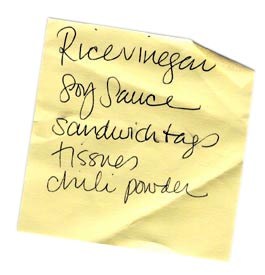 Rice vinegar
Soy Sauce
sandwich bags
tissues
chili powder